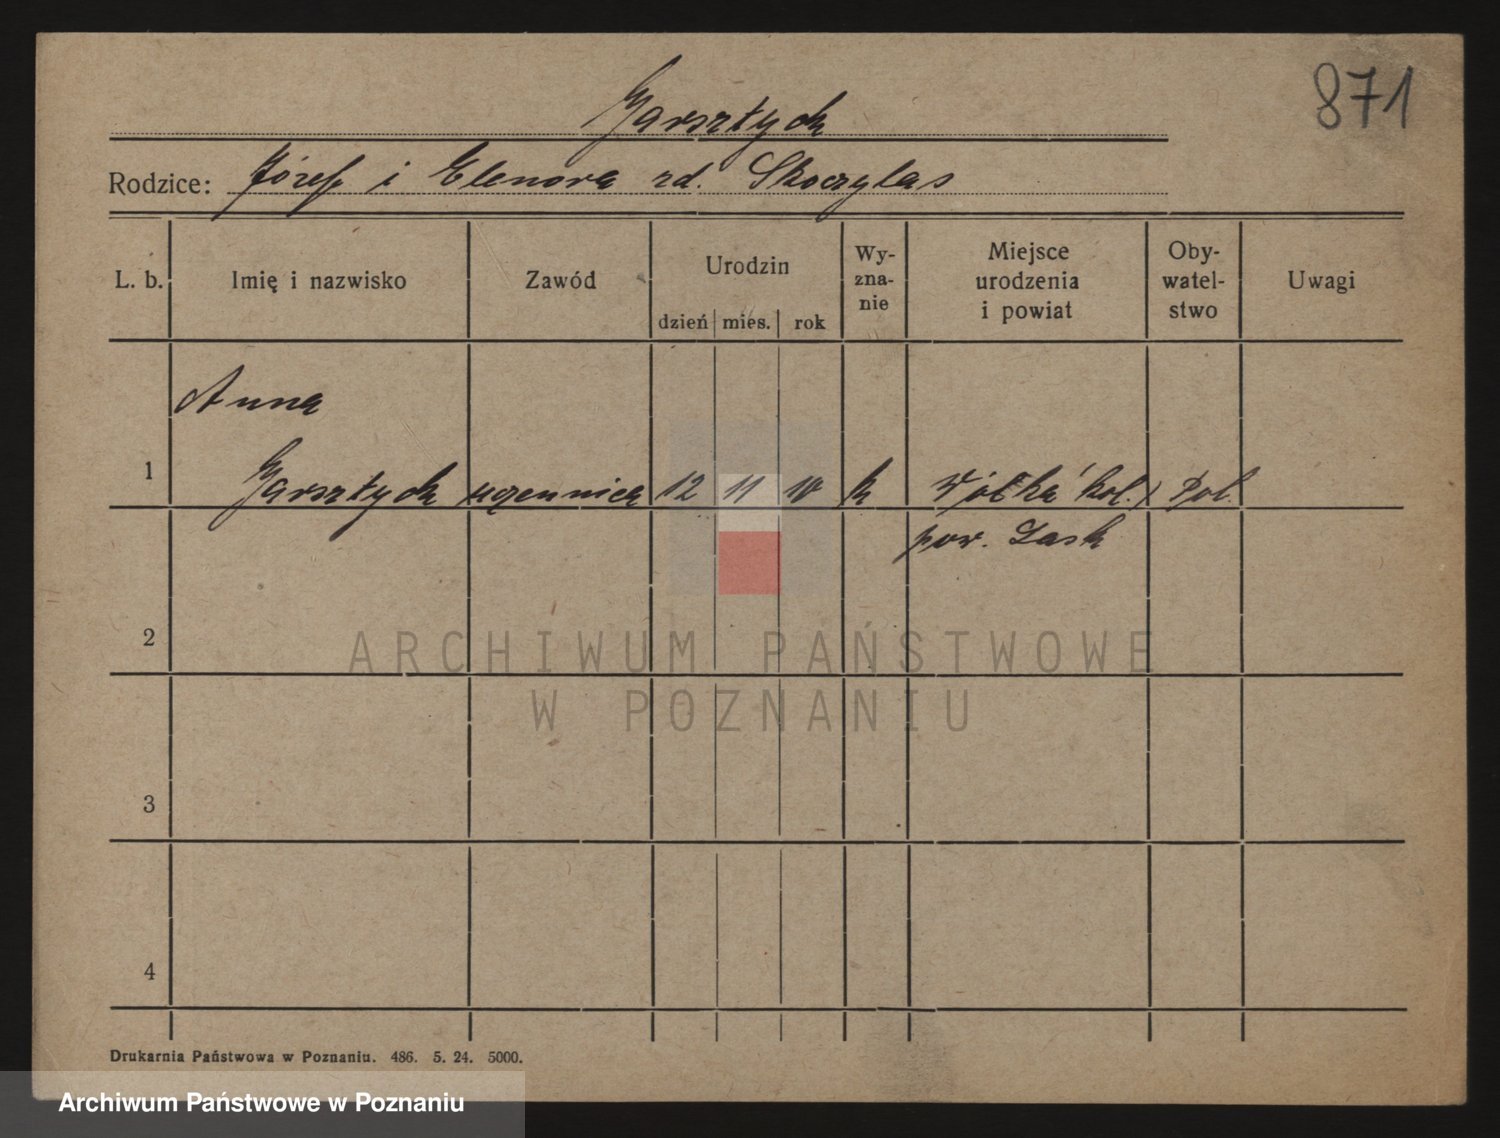 871
Garsztych
Rodzice: Józef i Elenora zd. Skoczylas
L. b. Imię i nazwisko Zawód Urodzin dzień mies. rok Wy-zna-nie Miejsce urodzenia i powiat Oby-watel-stwo Uwagi
Anna
1 Garsztych uczennica 12 11 10 k Wólka kol./ Pol.
pow. Łask
2
ARCHIWUM PAŃSTWOWE
W POZNANIU
3
4
Drukarnia Państwowa w Poznaniu. 486. 5. 24. 5000.
Archiwum Państwowe w Poznaniu